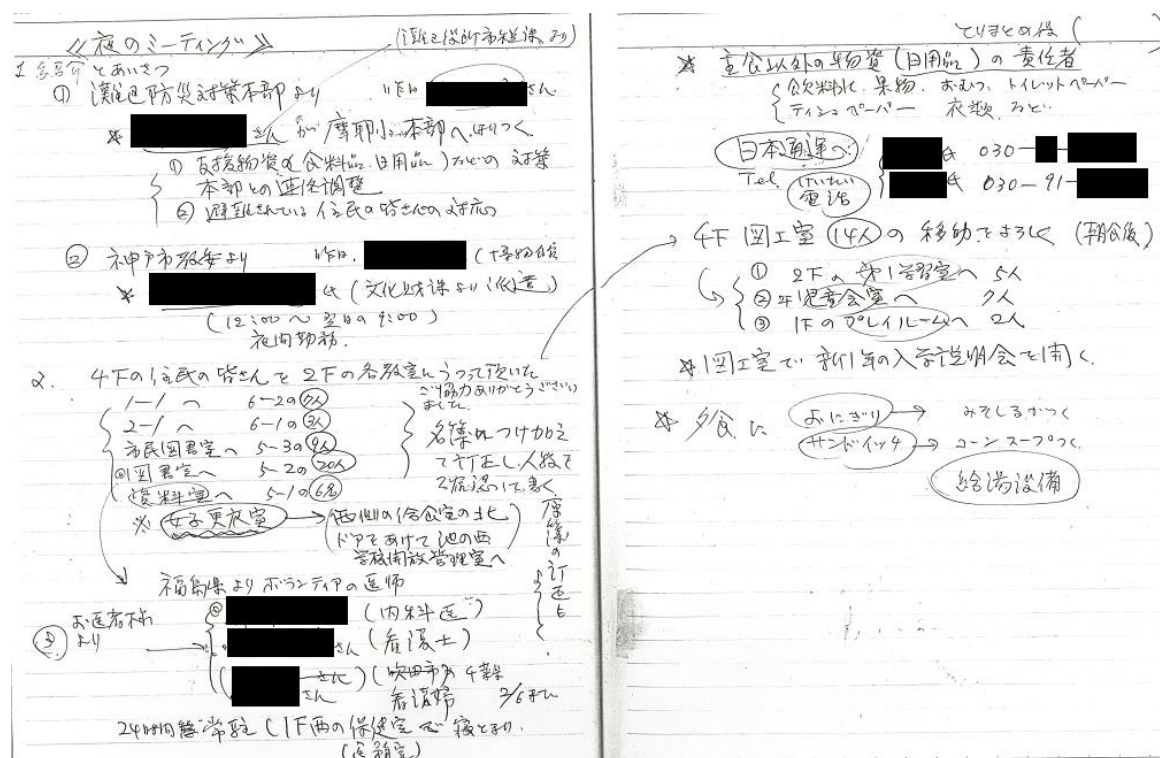 ≪夜のミーティング≫
(灘区役所市組課より)
1 紹介とあいさつ
① 灘区防災対策本部より 昨日 さん
* さんが摩耶小本部へはりつく
① 支援物資(食料品、日用品)などの対策
本部との連絡調整
② 避難されている住民の皆さんへの対応
② 神戸市教委より 昨日、
* 氏(文化財課より派遣)
(12:00〜翌日の9:00)
夜間勤務.
2. 4Fの住民の皆さんを2Fの各教室にうつって頂いた
ご協力ありがとうござい
ました
1-1へ 6-2の7人
2-1へ 6-1の3人
市民図書室へ 5-3の4人
図書室へ 5-2の20人
資料室へ 5-1の6名
名簿 つけかえ
て訂正し、人数を
確認して書く
名簿の訂正も
※ 女子更衣室 → 西側の会食室の北
ドアをあけて池の西
学校開放管理室へ
福島県よりボランティアの医師
③ お医者様より
(内科医)
さん (看護士)
さん (吹田市 千葉
看護婦 2/6まで
24時間 常駐(1F西の保健室で寝とまり.
(医務室)
とりまとめ役(
* 主食以外の物資(日用品)の責任者
飲料水、果物、おむつ、トイレットペーパー
ティシュペーパー 衣類など
日本通運へ 氏 030-
Tel. けいたい電話 氏 030-91-
4F 図工室 14人の移動をよろしく (朝食後)
① 2Fの第1学習室へ 5人
② 2F児童会室へ 7人
③ 1Fのプレイルームへ 2人
* 図工室で新1年の入学説明会を開く.
* 夕食に おにぎり → みそしるがつく
サンドイッチ → コーンスープつく.
給湯設備